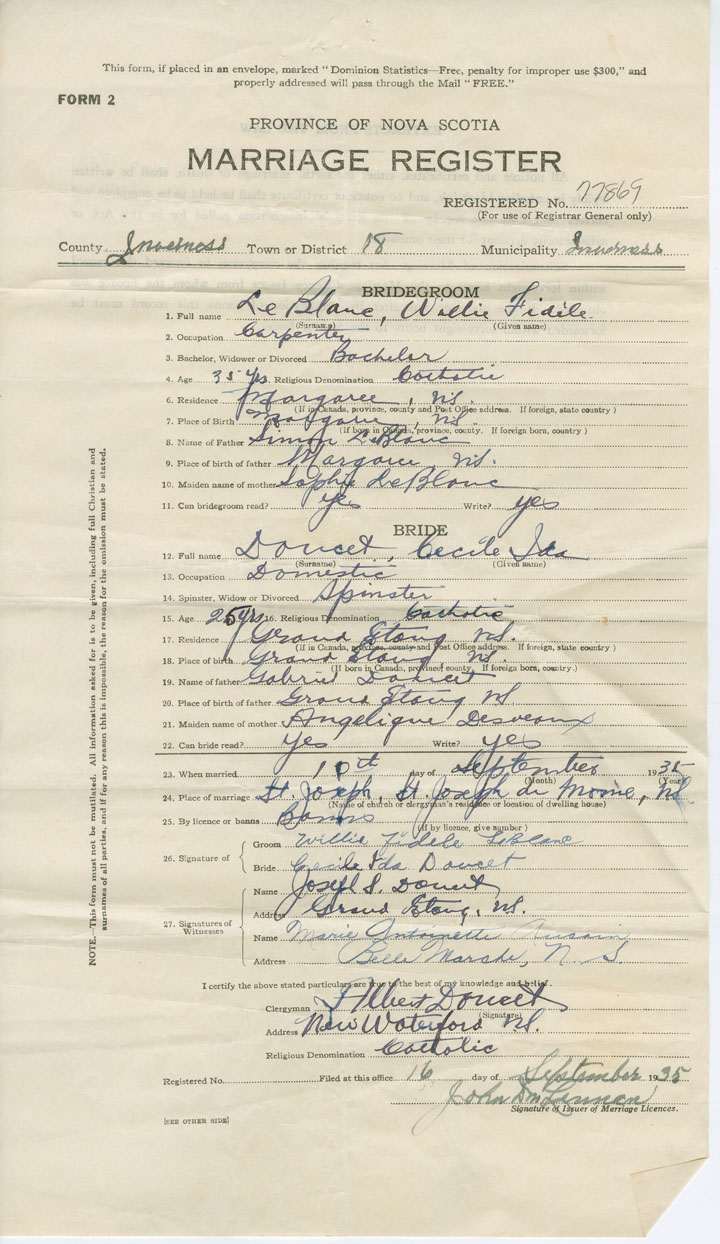 This form, if placed in an envelope, marked " Dominion Statistics—Free, penalty for improper use $300," and
properly addressed will pass through the Mail "FREE."
FORM 2
PROVINCE OF NOVA SCOTIA
MARRIAGE REGISTER
REGISTERED No. 77869
(For use of Registrar General only)
County Inverness Town or District 18 Municipality Inverness
BRIDEGROOM
1. Full name Le Blanc, Willie Fidile
(Surname) (Given name)
2. Occupation Carpenter
3. Bachelor, Widower or Divorced Bachelor
4. Age 35 yrs. Religious Denomination Catholic
6. Residence Margaree, NS.
(If in Canada, province, county and Post Office address. If foreign, state country )
7. Place of Birth Margaree, NS.
(If born in Canada, province, county. If foreign born, country.)
8. Name of Father Simon LeBlanc
9. Place of birth of father Margaree NS.
10. Maiden name of mother Sophie LeBlanc
11. Can bridegroom read? yes Write? yes
BRIDE
12. Full name Doucet, Cecile Ida
(Surname) (Given name)
13. Occupation Domestic
14. Spinster, Widow or Divorced Spinster
15. Age 25 yrs 16. Religious Denomination Catholic
17. Residence Grand Etang NS.
(If in Canada, province, county and Post Office address. If foreign, state country )
18. Place of birth Grand Etang NS.
(If born in Canada, province county. If foreign born, country.)
19. Name of father Gabriel Doucet
20. Place of birth of father Grand Etang NS
21. Maiden name of mother Angelique Desveaux
22. Can bride read? yes Write? yes
23. When married 10th day of September 1935
(Month) (Year)
24. Place of marriage St. Joseph, St. Joseph du Moine, NS
(Name of church or clergyman's residence or location of dwelling house)
25. By licence or banns Banns
(If by licence, give number )
26. Signature of
Groom Willie Fidele LeBlanc
Bride Cecile Ida Doucet
27. Signatures of Witnesses
Name Joseph S. Doucet
Address Grand Etang, NS.
Name Marie Antoinette
Address Belle Marche, N. S.
I certify the above stated particulars are true to the best of my knowledge and belief.
Clergyman Albert Doucet
(Signature)
Address New Waterford NS.
Religious Denomination Catholic
Registered No. Filed at this office 16 day of September 1935
John
Signature of Issuer of Marriage Licences.
[SEE OTHER SIDE]
NOTE.—This form must not be mutilated. All information asked for is to be given, including full Christian and
surnames of all parties, and if for any reason this is impossible, the reason for the omission must be stated.